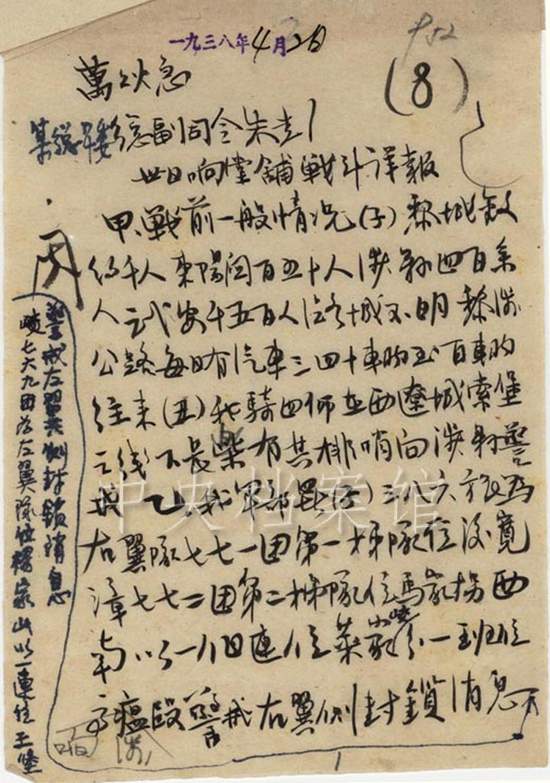 一九三八年4月2日
(8)
萬火急
副司令朱
卅日响堂舖戰斗详報
甲、戰前一般情况(子)黎城敌
约千人東陽関百五十人涉縣四百余
人武安千五百人潞城不明黎涉
公路每日有汽車三四十車的至百車的
往来(丑)我騎四师在西遼城索堡
之线下良有其排哨向涉縣警
戒 乙、我軍部署(子)三八六旅為
右翼隊七七一团第一梯隊位後寬
漳七七二团第二梯隊位馬家拐西
南以一連位 一班位
警戒右翼側封鎖消息
警戒左翼側封鎖消息
七六九团為左翼隊位楊家山以一連位王堡
中央档案馆